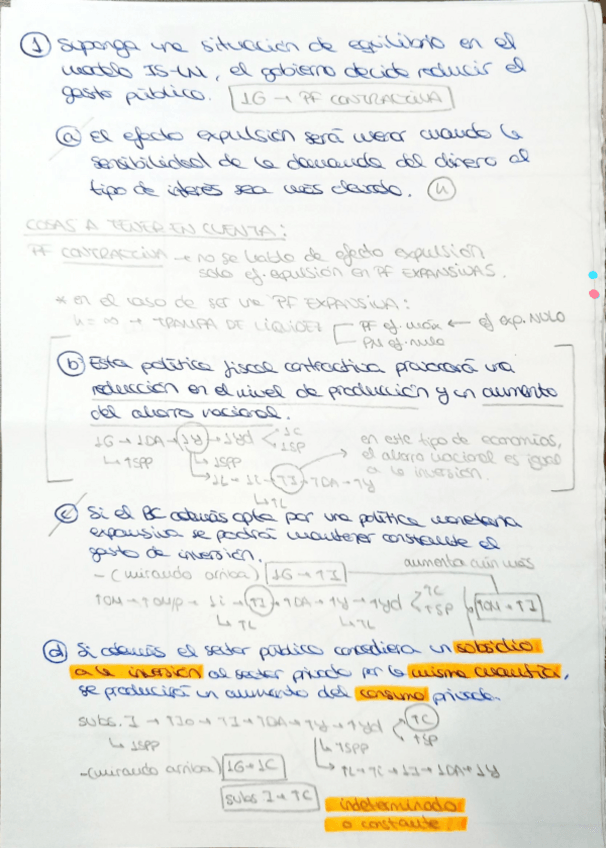 ① Suponga una situación de equilibrio en el
modelo IS-LM, el gobierno decide reducir el
gasto público. ↓G → PF CONTRACTIVA
ⓐ El efecto expulsión será menor cuando la
sensibilidad de la demanda del dinero al
tipo de interés sea más elevado. ⓗ
COSAS A TENER EN CUENTA:
PF CONTRACTIVA → no se habla de efecto expulsión
solo ef. expulsión en PF EXPANSIVAS.
* en el caso de ser una PF EXPANSIVA:
h = ∞ → TRAMPA DE LIQUIDEZ
PF ef. máx ← ef exp. NULO
PM ef. nulo
ⓑ Esta política fiscal contractiva provocará una
reducción en el nivel de producción y un aumento
del ahorro nacional.
↓G → ↓DA → ↓Y → ↓Yd < ↓C ↓SP
↳ ↑SPP ↳ ↓SPP
↳ ↓L → ↓i → ↑I → ↑DA → ↑Y
↳ ↑L
en este tipo de economías,
el ahorro nacional es igual
a la inversión.
ⓒ Si el BC además opta por una política monetaria
expansiva se podrá mantener constante el
gasto de inversión.
- (mirando arriba) ↓G → ↑I
aumenta aún más
↑OM → ↑OM/P → ↓i → ↑I → ↑DA → ↑Y → ↑Yd < ↑C ↑SP
↳ ↑L ↳ ↑L
↑OM → ↑I
ⓓ Si además el sector público concediera un subsidio
a la inversión al sector privado por la misma cuantía,
se produciría un aumento del consumo privado.
subs. I → ↑Io → ↑I → ↑DA → ↑Y → ↑Yd < ↑C ↑SP
↳ ↓SPP ↳ ↑SPP
↳ ↑L → ↑i → ↓I → ↓DA → ↓Y
- (mirando arriba) ↓G → ↓C
subs I → ↑C
indeterminado
o constante